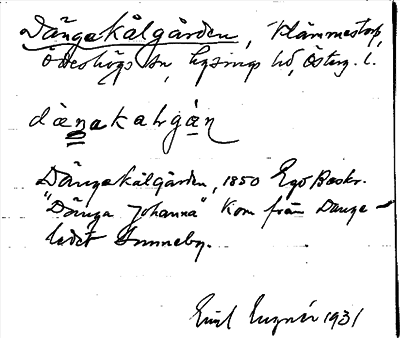 Dängakålgården, Plämmestorp,
Ödeshögs sn, Lysings hd, Österg. l.
dàŋakaLgáṇ
Dängakålgården, 1850 Ego Beskr.
"Dänga Johanna" kom från Dänge-
ledet Sunneby.
Emil 1931